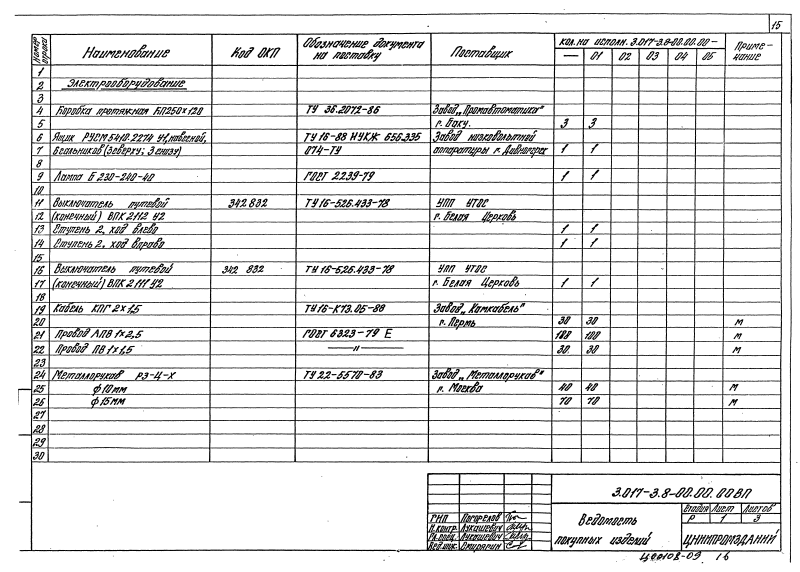 15
Номер строки Наименование Код ОКП Обозначение документа на поставку Поставщик Кол. на исполн. 3.017-3.8-00.00.00- Приме-чание
— 01 02 03 04 05
1
2 Электрооборудование
3
4 Коробка протяжная КП250×120 ТУ 36.2072-86 Завод „Промавтоматика"
5 г. Баку. 3 3
6 Ящик РУСМ5410.2274 У1, навесной, ТУ16-88 НУКЖ 656.335 Завод низковольтной
7 6сальников (3сверху; 3снизу) 074-ТУ аппаратуры г. Дивногорск 1 1
8
9 Лампа Б 230-240-40 ГОСТ 2239-79 1 1
10
11 Выключатель путевой 342 832 ТУ16-526.433-78 УПП УТОС
12 (конечный) ВПК 2112 У2 г. Белая Церковь
13 Ступень 2, ход влево 1 1
14 Ступень 2, ход вправо 1 1
15
16 Выключатель путевой 342 832 ТУ16-526.433-78 УПП УТОС
17 (конечный) ВПК 2111 У2 г. Белая Церковь 1 1
18
19 Кабель КПГ 2×1,5 ТУ16-К73.05-88 Завод „Камкабель"
20 г. Пермь 30 30 м
21 Провод АПВ 1×2,5 ГОСТ 6323-79 Е 100 100 м
22 Провод ПВ 1×1,5 —"— 30 30 м
23
24 Металлорукав РЗ-Ц-Х ТУ 22-5570-83 Завод „Металлорукав"
25 ф 10мм г. Москва 40 40 м
26 ф 15мм 70 70 м
27
28
29
30
3.017-3.8-00.00.00ВП
ГИП Погорелов
Н.контр. Лукашевич
Рк.разд. Лукашевич
Вед.инж.
Ведомость
покупных изделий
Стадия Лист Листов
Р 1 3
ЦНИИПРОМЗДАНИЙ
ЦФ0108-09 16